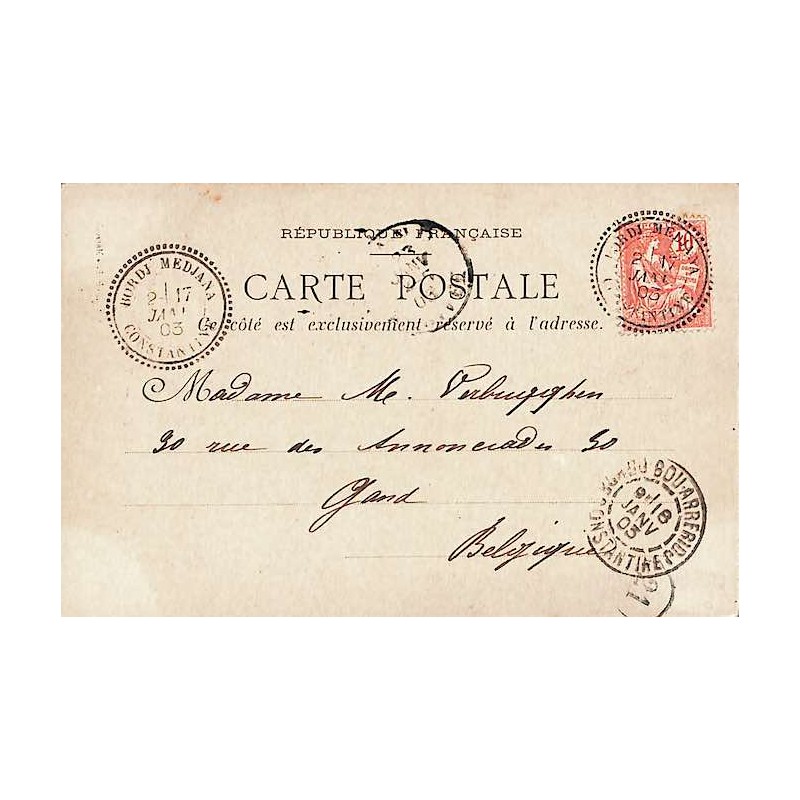 RÉPUBLIQUE FRANÇAISE
CARTE POSTALE
Ce côté est exclusivement réservé à l'adresse.
BORDJ MEDJANA
2-17
JANV
03
CONSTANTINE
10
BORDJ MEDJANA
2 17
JANV
03
CONSTANTINE
Madame M. Verbrugghen
30 rue des Annonciades 30
Gand
Belgique
BORDJ BOU-ARRERIDJ
9-18
JANV
03
CONSTANTINE
21